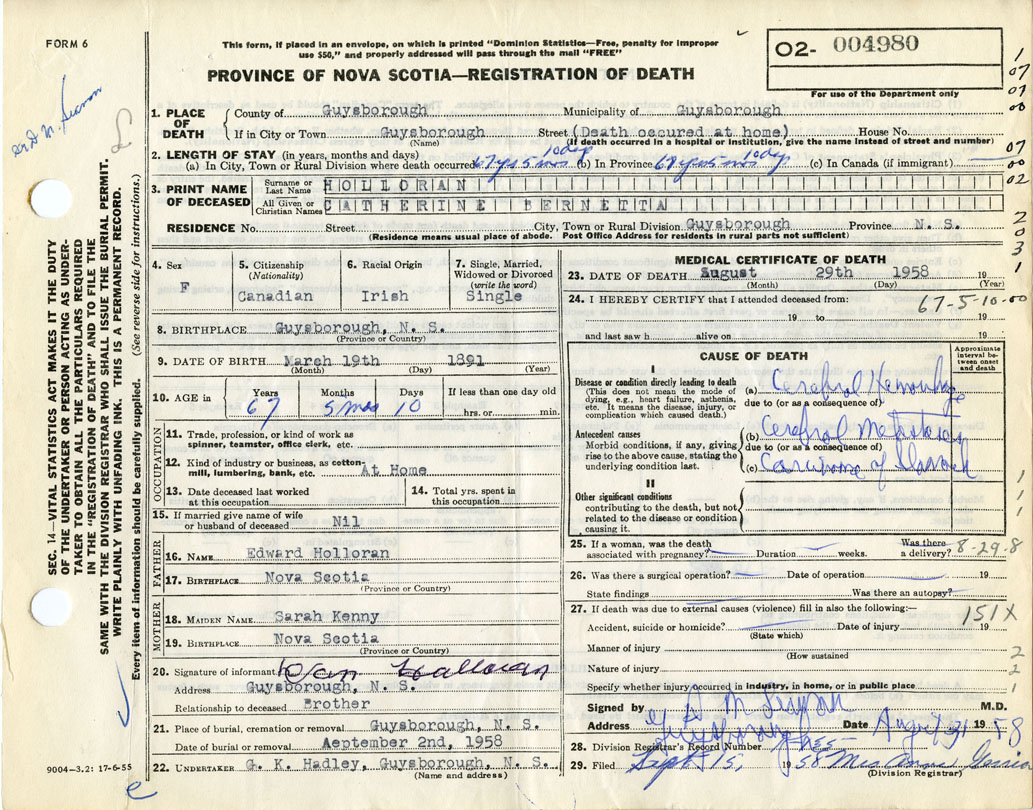 FORM 6
This form, if placed in an envelope, on which is printed "Dominion Statistics—Free, penalty for improper
use $50," and properly addressed will pass through the mail "FREE"
PROVINCE OF NOVA SCOTIA—REGISTRATION OF DEATH
O2- 004980
For use of the Department only
SEC. 14—VITAL STATISTICS ACT MAKES IT THE DUTY
OF THE UNDERTAKER OR PERSON ACTING AS UNDER-
TAKER TO OBTAIN ALL THE PARTICULARS REQUIRED
IN THE "REGISTRATION OF DEATH" AND TO FILE THE
SAME WITH THE DIVISION REGISTRAR WHO SHALL ISSUE THE BURIAL PERMIT.
WRITE PLAINLY WITH UNFADING INK. THIS IS A PERMANENT RECORD.
Every item of information should be carefully supplied. (See reverse side for instructions.)
1. PLACE OF DEATH
County of Guysborough Municipality of Guysborough
If in City or Town Guysborough Street (Death occured at home) House No.
(Name) (If death occurred in a hospital or institution, give the name instead of street and number)
2. LENGTH OF STAY (in years, months and days)
(a) In City, Town or Rural Division where death occurred 67 yrs 5 mos 10 dys (b) In Province 67 yrs 5 mos 10 dys (c) In Canada (if immigrant)
3. PRINT NAME OF DECEASED
Surname or Last Name HOLLORAN
All Given or Christian Names CATHERINE BERNETTA
RESIDENCE No. Street City, Town or Rural Division Guysborough Province N. S.
(Residence means usual place of abode. Post Office Address for residents in rural parts not sufficient)
4. Sex
F
5. Citizenship
(Nationality)
Canadian
6. Racial Origin
Irish
7. Single, Married,
Widowed or Divorced
(write the word)
Single
8. BIRTHPLACE Guysborough, N. S.
(Province or Country)
9. DATE OF BIRTH March 19th 1891
(Month) (Day) (Year)
10. AGE in
Years Months Days If less than one day old
67 5 mos 10 hrs. or min.
OCCUPATION
11. Trade, profession, or kind of work as
spinner, teamster, office clerk, etc.
12. Kind of industry or business, as cotton-
mill, lumbering, bank, etc. At Home
13. Date deceased last worked
at this occupation
14. Total yrs. spent in
this occupation
15. If married give name of wife
or husband of deceased Nil
FATHER
16. NAME Edward Holloran
17. BIRTHPLACE Nova Scotia
(Province or Country)
MOTHER
18. MAIDEN NAME Sarah Kenny
19. BIRTHPLACE Nova Scotia
(Province or Country)
20. Signature of informant Dan Halloran
Address Guysborough, N. S.
Relationship to deceased Brother
21. Place of burial, cremation or removal Guysborough, N. S.
Date of burial or removal Aeptember 2nd, 1958
22. UNDERTAKER G. K. Hadley, Guysborough, N. S.
(Name and address)
9004—3.2: 17-6-55
MEDICAL CERTIFICATE OF DEATH
23. DATE OF DEATH August 29th 1958 19
(Month) (Day) (Year)
24. I HEREBY CERTIFY that I attended deceased from:
67-5-10-00
19 to 19
and last saw h alive on 19
CAUSE OF DEATH
Approximate
interval be-
tween onset
and death
I
Disease or condition directly leading to death
(This does not mean the mode of
dying, e.g., heart failure, asthenia,
etc. It means the disease, injury, or
complication which caused death.)
(a) Cerebral Hemorrhage
due to (or as a consequence of)
Antecedent causes
Morbid conditions, if any, giving
rise to the above cause, stating the
underlying condition last.
(b) Cerebral Metastases
due to (or as a consequence of)
(c) Carcinoma of Stomach
II
Other significant conditions
contributing to the death, but not
related to the disease or condition
causing it.
25. If a woman, was the death
associated with pregnancy? Duration weeks. Was there
a delivery? 8-29-8
26. Was there a surgical operation? Date of operation 19
State findings Was there an autopsy?
27. If death was due to external causes (violence) fill in also the following:—
151X
Accident, suicide or homicide? Date of injury 19
(State which)
Manner of injury
(How sustained
Nature of injury
Specify whether injury occurred in industry, in home, or in public place
Signed by M.D.
Address Date Aug 31 1958
28. Division Registrar's Record Number
29. Filed Sept 15, 1958 Mrs
(Division Registrar)
1
07
07
00
07
00
02
2
0
3
1
1
1
1
2
2
1